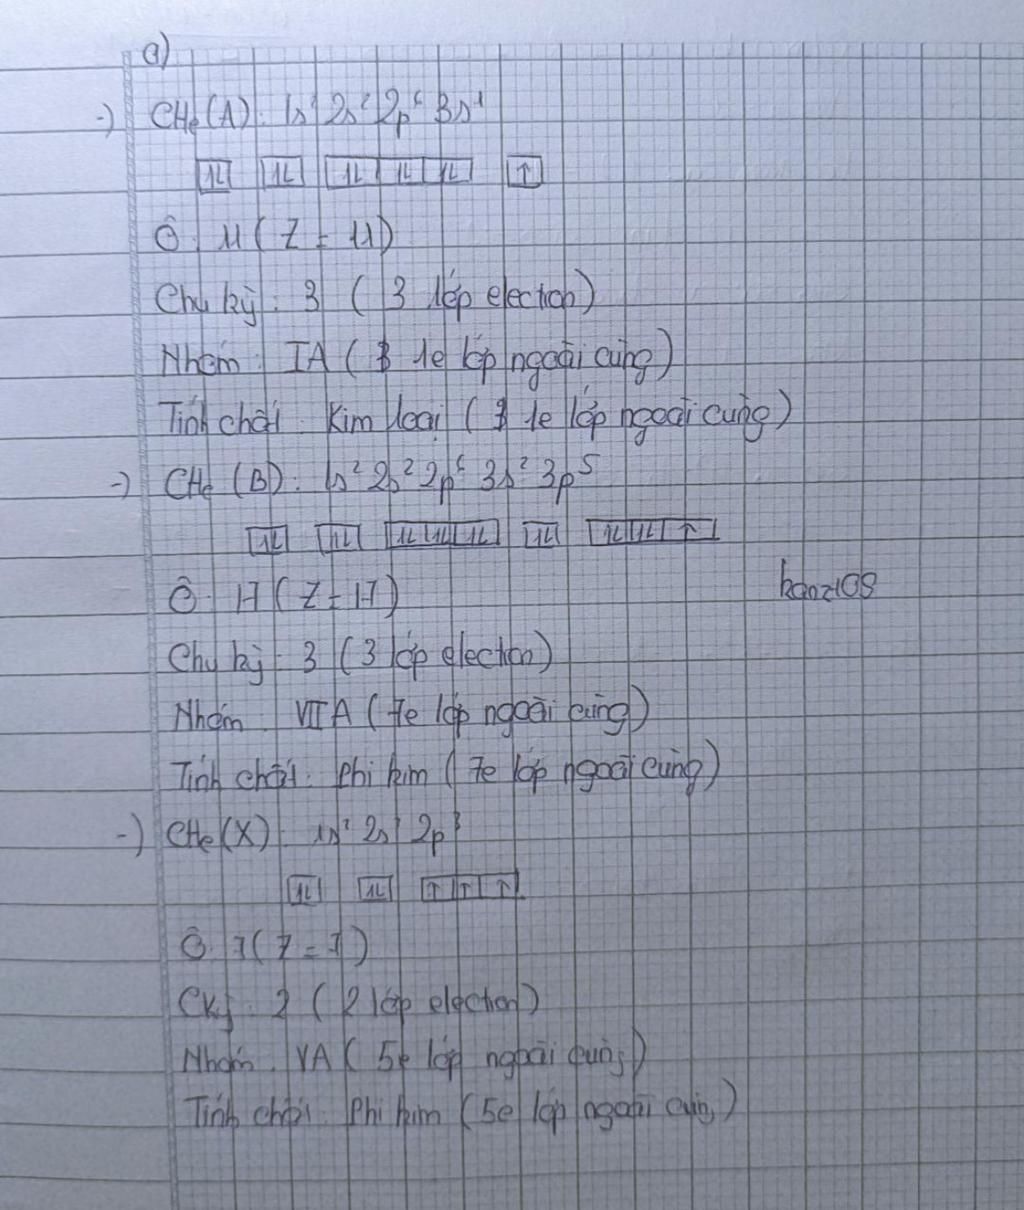 a)
-) CHe (A): 1s² 2s² 2p⁶ 3s¹
↑↓ ↑↓ ↑↓ ↑↓ ↑↓ ↑
Ô: 11 (Z = 11)
Chu kỳ: 3 (3 lớp electron)
Nhóm: IA (1e lớp ngoài cùng)
Tính chất: Kim loại (1e lớp ngoài cùng)
-) CHe (B): 1s² 2s² 2p⁶ 3s² 3p⁵
↑↓ ↑↓ ↑↓ ↑↓ ↑↓ ↑↓ ↑↓ ↑↓ ↑
Ô: 17 (Z = 17)
Chu kỳ: 3 (3 lớp electron)
Nhóm: VIIA (7e lớp ngoài cùng)
Tính chất: Phi kim (7e lớp ngoài cùng)
-) CHe (X): 1s² 2s² 2p³
↑↓ ↑↓ ↑ ↑ ↑
Ô: 7 (Z = 7)
Cky: 2 (2 lớp electron)
Nhóm: VA (5e lớp ngoài cùng)
Tính chất: Phi kim (5e lớp ngoài cùng)